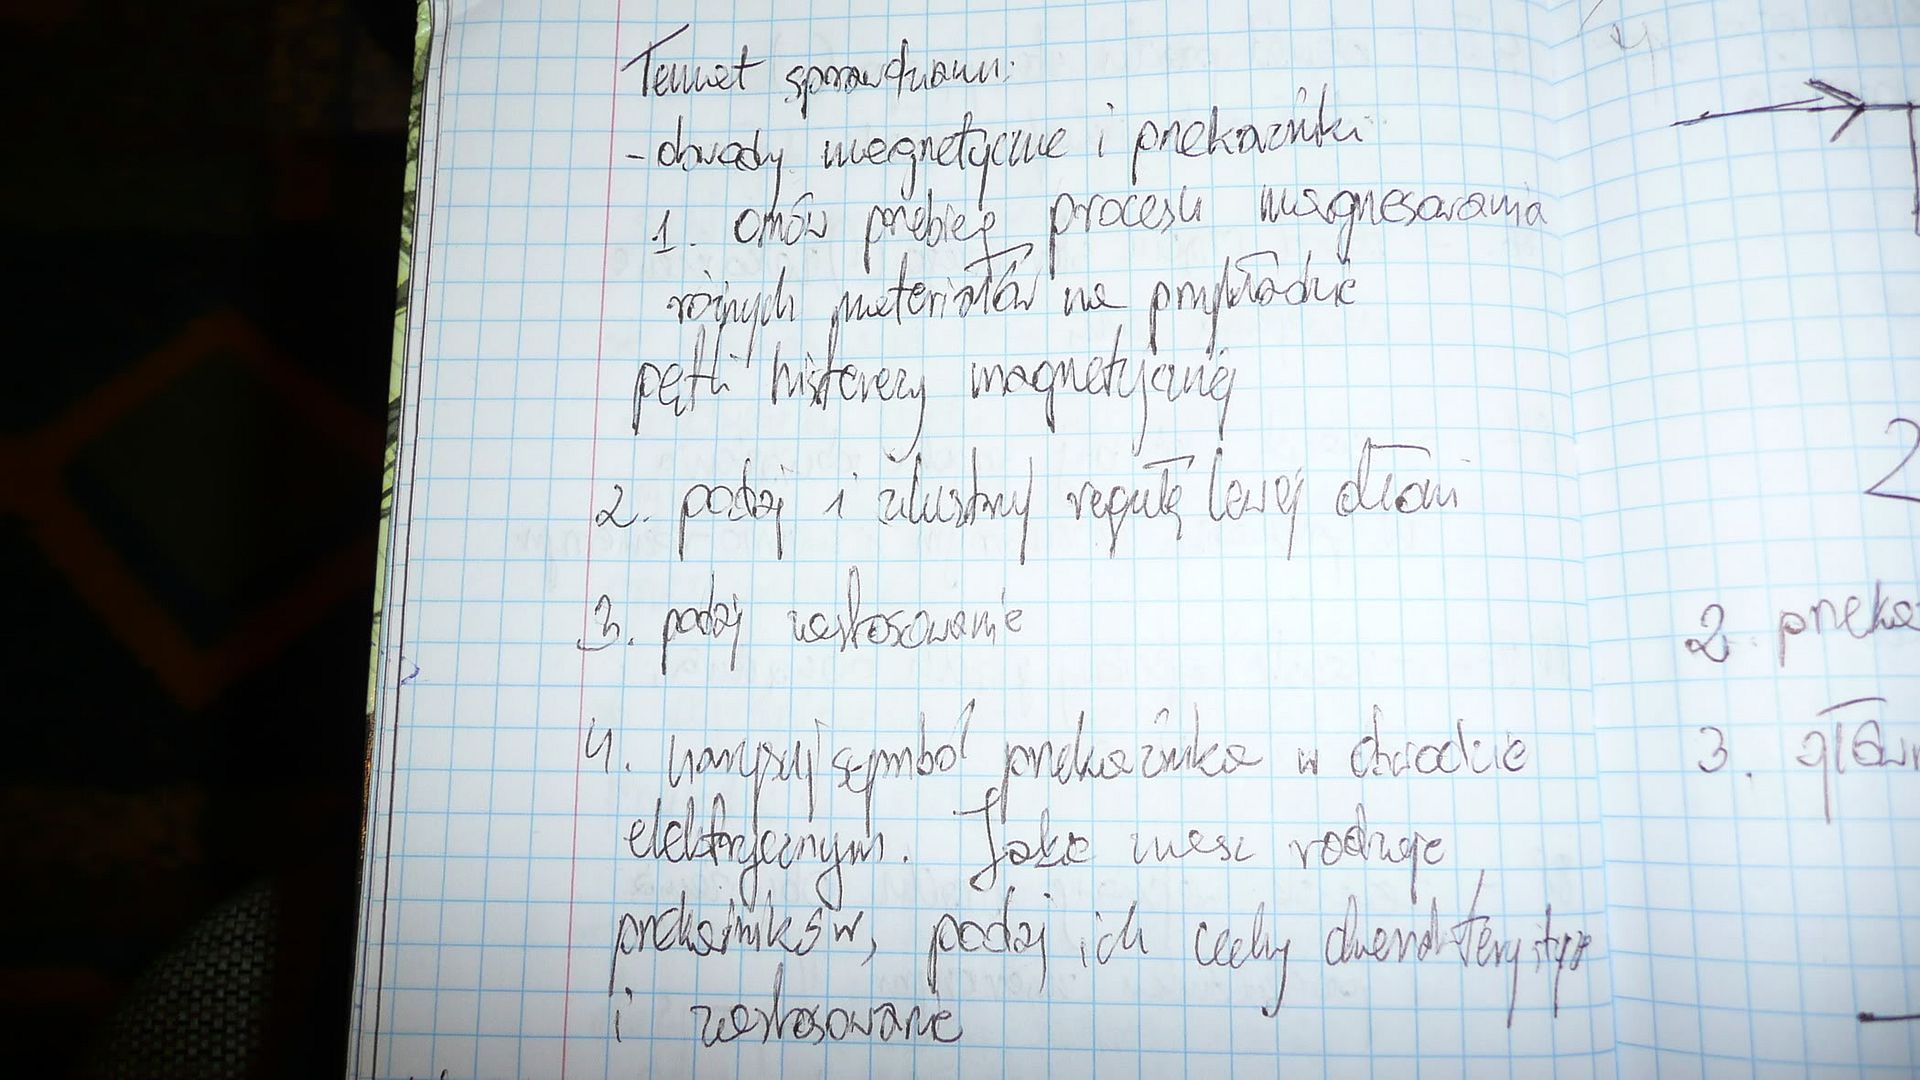 Temat sprawdzianu:
- obwody magnetyczne i przekaźniki
1. omów przebieg procesu magnesowania
różnych materiałów na przykładzie
pętli histerezy magnetycznej
2. podaj i zilustruj regułę lewej dłoni
3. podaj zastosowanie
4. narysuj symbol przekaźnika w obwodzie
elektrycznym. Jakie znasz rodzaje
przekaźników, podaj ich cechy charakterystycz
i zastosowanie
2
2. przeka
3. główn